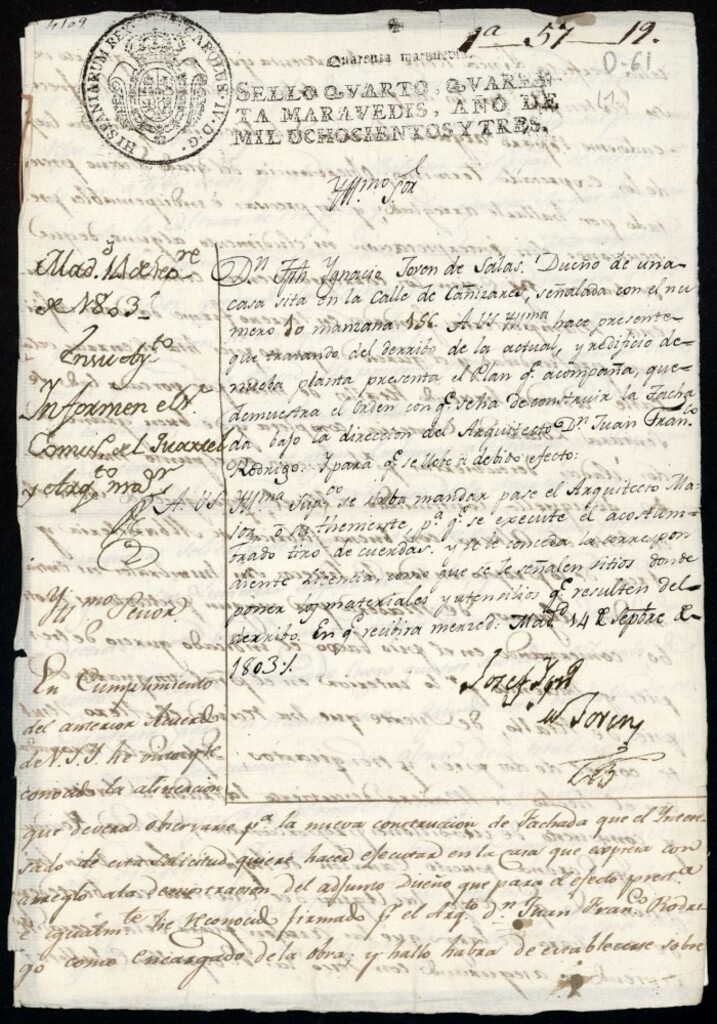 1ª 57 19.
D-61
HISPANIARUM REX CAROLUS IV D.G.
Quarenta maravedis.
SELLO QVARTO, QVAREN-
TA MARAVEDIS, AÑO DE
MIL OCHOCIENTOS Y TRES.
Yllmo Sor
Madd y 14 de Sepre
de 1803
Informen el Sr
Comiso del Quartel
y Arqto mayr
Dn Jph Ygnacio Joven de Salas, Dueño de una
casa sita en la Calle de Cañizares, señalada con el nu
mero 10 manzana 156. A VS Yllma hace presente
que tratando del derribo de la actual, y redificio de
nueba planta presenta el Plan qe acompaña, que
demuestra el Orden con qe se ha de construir la Facha
da bajo la direccion del Arquitecto Dn Juan Franco
Rodrigo: Y para qe se llebe a debido efecto:
A VS Yllma Supco se sirba mandar pase el Arquitecto Ma
yor, o su theniente, pa qe se execute el acostum
brado tiro de cuerdas, y se le conceda la correspon
diente licencia, como que se le señalen sitios donde
poner los materiales y utensilios qe resulten del
derribo. En qe recibira merced: Madd 14 de Septbre de
1803
Josef Ygno
Joven
Yllmo Señor
En Cumplimiento
del anterior Acuerdo
de V.S.Y. he
conocido la alineacion
que deverá observarse pa la nueva construccion de Fachada que el Intere-
sado de esta solicitud quiere hacer ejecutar en la casa que expresa con
arreglo a la demostracion del adjunto Diseño que para el efecto presta
e igualmte he reconocido firmado pr el Arqto dn Juan Franco Rodri
go como encargado de la obra; y hallo habrá de establecerse sobre